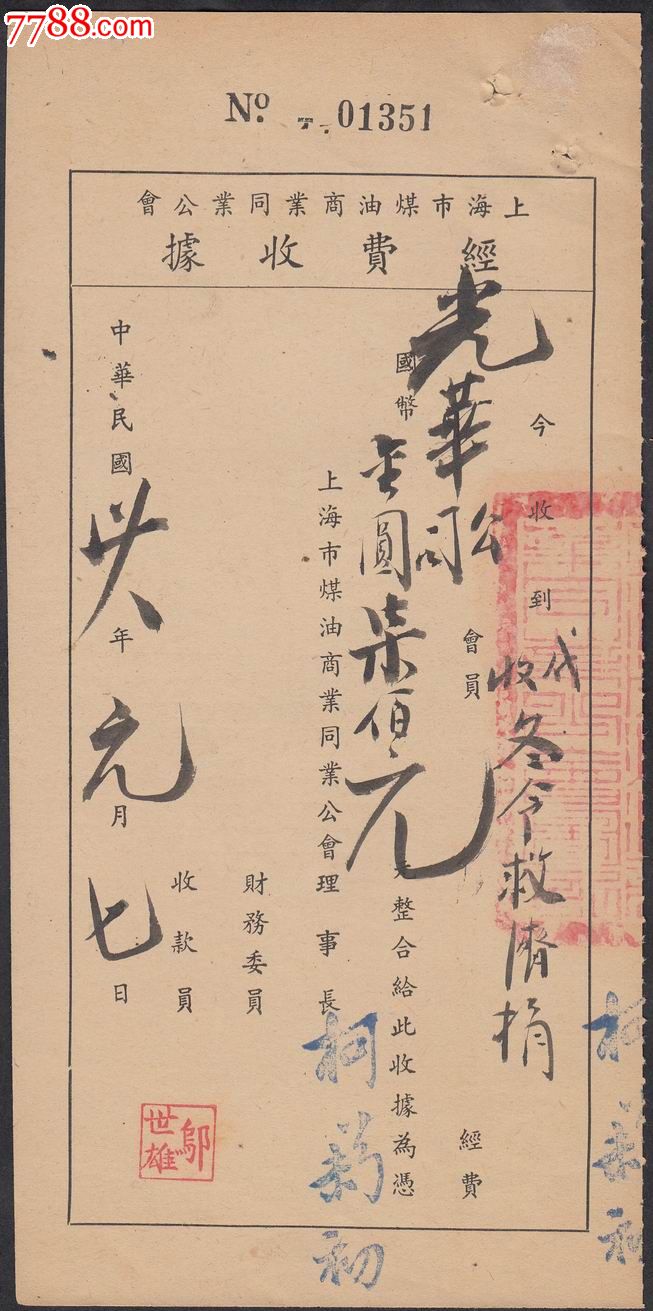 7788.com
№ 01351
上海市煤油商業同業公會
經費收據
今收到
代收冬令救濟捐
光華公司
會員
經費
國幣
金圓柒佰元
整合給此收據為憑
上海市煤油商業同業公會理事長
柯菊初
財務委員
收款員
鄔世雄
中華民國卅八年元月七日